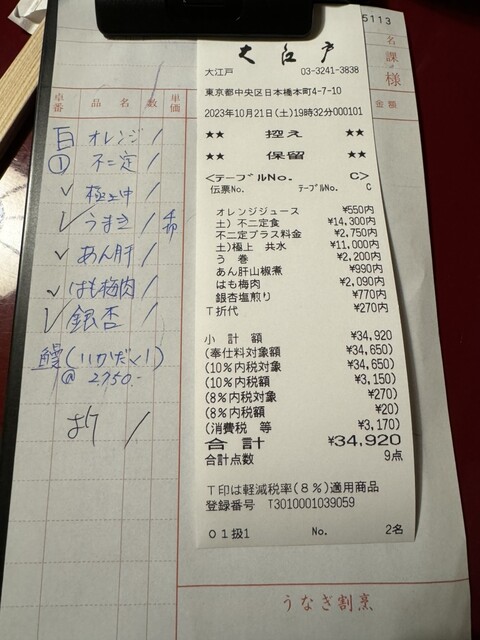 5113
名
課
様
金額
卓番 品名 数 単価
オレンジ /
① 不二定 /
✓ 極上中 /
✓ うまき /
✓ あん肝 /
✓ はも梅肉 /
✓ 銀杏 /
鰻(いかだ〈1)
@ 2750.-
/
大江戸
大江戸 03-3241-3838
東京都中央区日本橋本町4-7-10
2023年10月21日(土)19時32分000101
★★ 控え ★★
★★ 保留 ★★
<テーブルNo. C>
伝票No. テーブルNo. C
オレンジジュース ¥550内
土) 不二定食 ¥14,300内
不二定プラス料金 ¥2,750内
土)極上 共水 ¥11,000内
う 巻 ¥2,200内
あん肝山椒煮 ¥990内
はも梅肉 ¥2,090内
銀杏塩煎り ¥770内
T折代 ¥270内
小 計 額 ¥34,920
(奉仕料対象額 ¥34,650)
(10%内税対象 ¥34,650)
(10%内税額 ¥3,150)
(8%内税対象 ¥270)
(8%内税額 ¥20)
(消費税 等 ¥3,170)
合 計 ¥34,920
合計点数 9点
T印は軽減税率(8%)適用商品
登録番号 T3010001039059
01扱1 No. 2名
うなぎ割烹